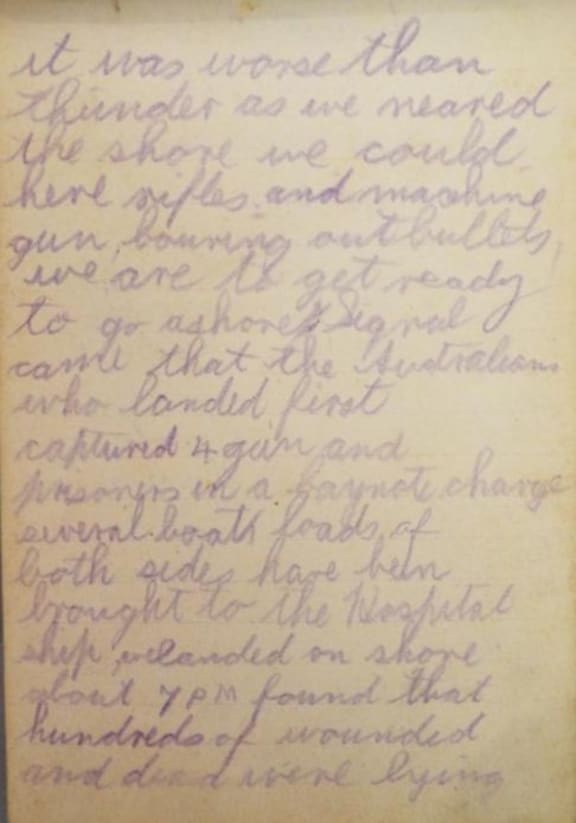 it was worse than
thunder as we neared
the shore we could
here rifles and machine
gun, bouring out bullets,
we are to get ready
to go ashore & Signal
came that the Australians
who landed first
captured 4 gun and
prisoners in a baynote charge
several boats loads of
both sides have been
brought to the Hospital
ship, we landed on shore
about 7 PM found that
hundreds of wounded
and dead were lying